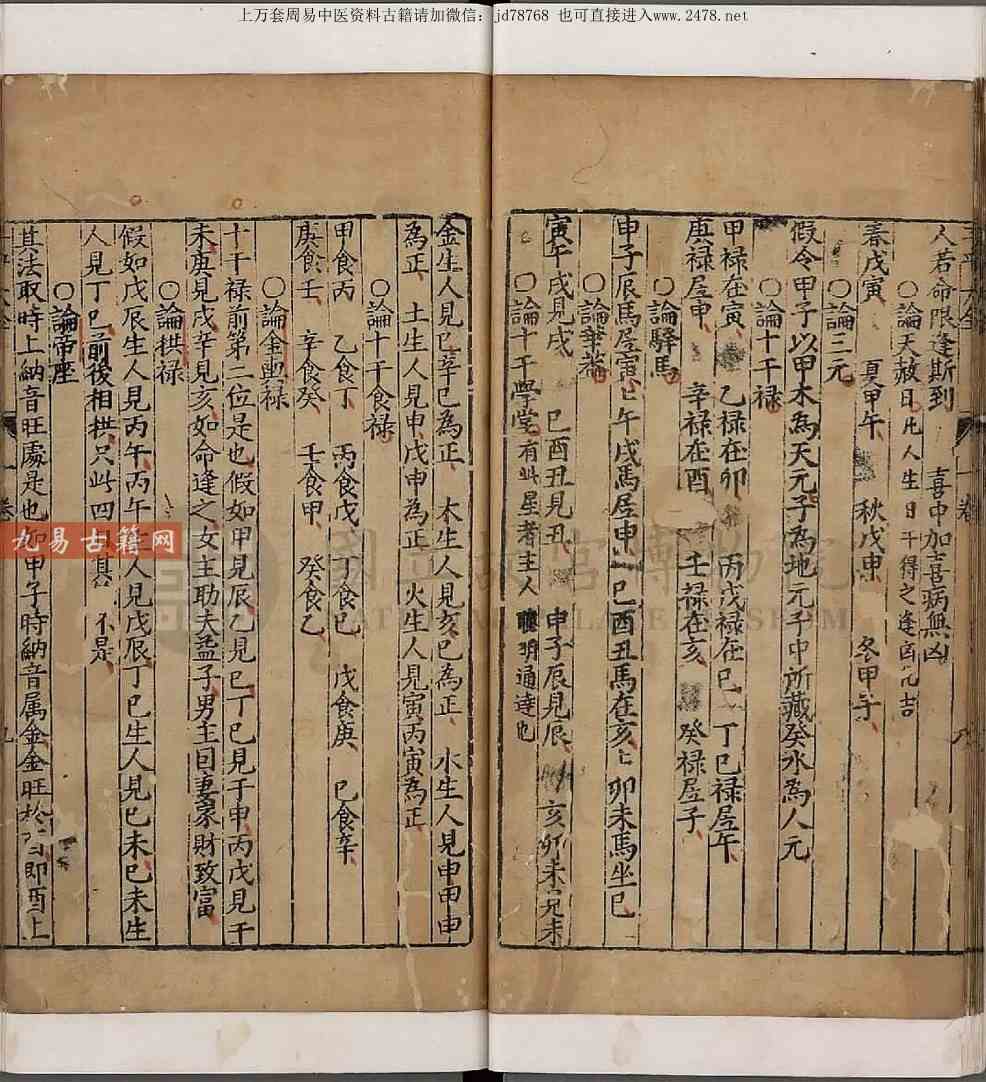 上万套周易中医资料古籍请加微信：jd78768 也可直接进入www.2478.net
人若命限逢斯到 喜中加喜病無凶
○論天赦日凡人生日干得之逢凶化吉
春戊寅 夏甲午 秋戊申 冬甲子
○論三元
假令甲子以甲木為天元子為地元子中所藏癸水為人元
○論十干禄
甲禄在寅 乙禄在卯 丙戊禄在巳 丁巳禄居午
庚禄居申 辛禄在酉 壬禄在亥 癸禄居子
○論驛馬
申子辰馬居寅 午戌馬居申 巳酉丑馬在亥 卯未馬坐巳
○論華蓋
寅午戌見戌 巳酉丑見丑 申子辰見辰 亥卯未見未
○論十干學堂有此星者主人聰明通達也
金生人見巳辛巳為正 木生人見亥巳為正 水生人見申甲申
為正 土生人見申戊申為正 火生人見寅丙寅為正
○論十干食禄
甲食丙 乙食丁 丙食戊 丁食巳 戊食庚 巳食辛
庚食壬 辛食癸 壬食甲 癸食乙
○論金輿禄
十干禄前第二位是也假如甲見辰乙見巳丁巳見于申丙戊見于
未庚見戌辛見亥如命逢之女主助夫益子男主因妻家財致富
○論拱禄
假如戊辰生人見丙午丙午生人見戊辰丁巳生人見巳未巳未生
人見丁巳前後相拱只此四 其 不是
○論帝座
其法取時上納音旺處是也如甲子時納音属金金旺於酉即酉上
九易古籍网
NATIONAL PALACE MUSEUM